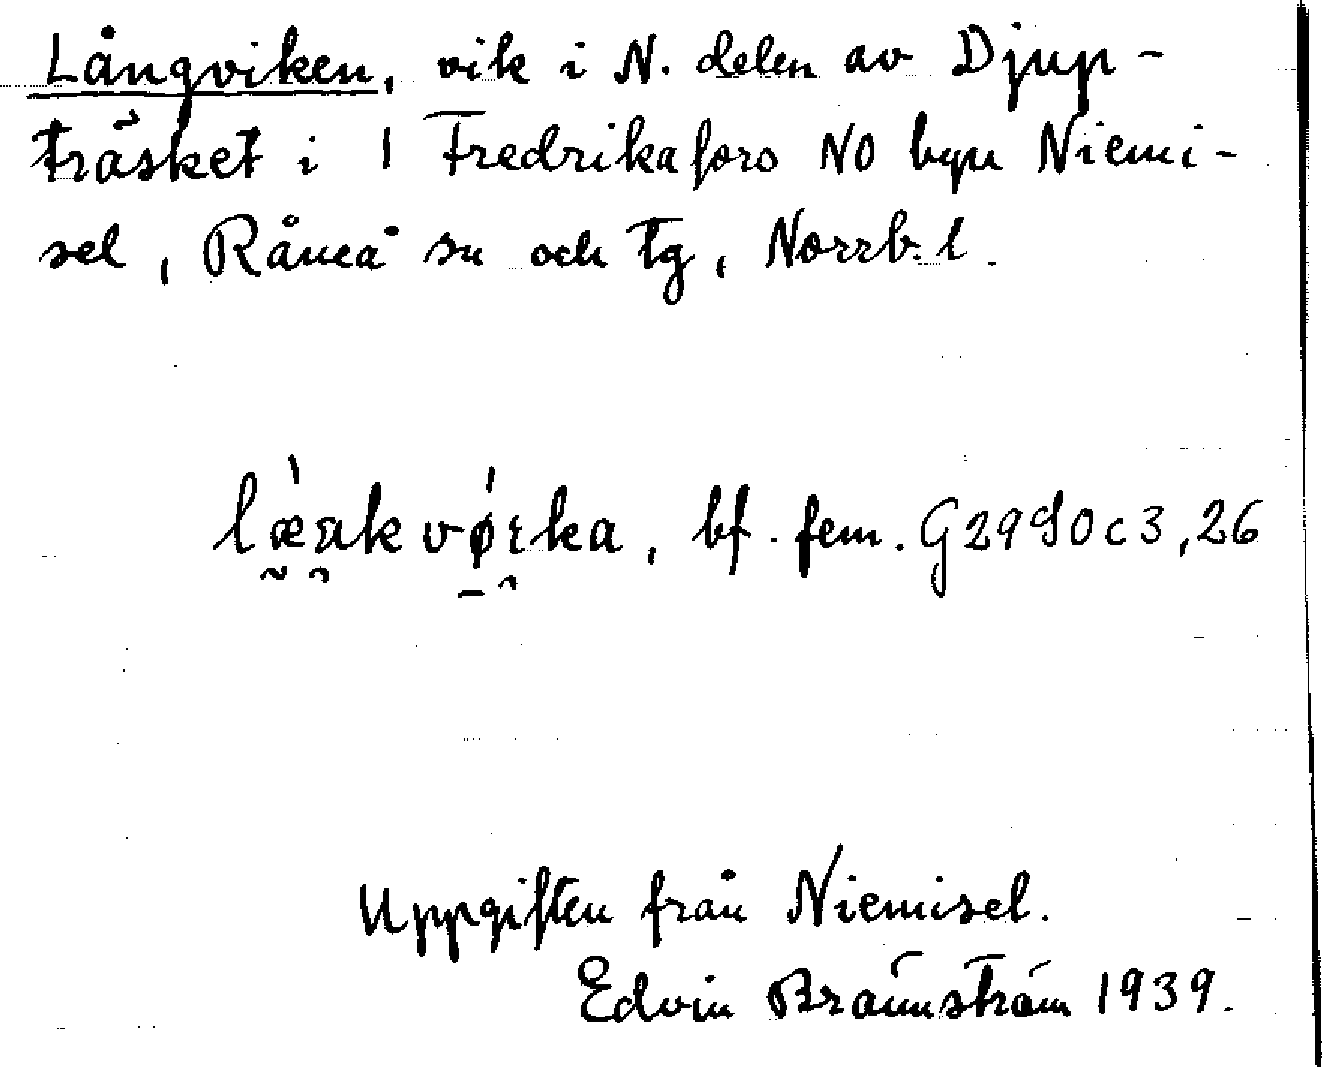 Långviken, vik i N. delen av Djup-
träsket i 1 Fredrikafors NO byn Niemi-
sel, Råneå sn och tg, Norrb. l.
bf. fem. G2990c3,26
Uppgiften från Niemisel.
Edvin Brännström 1939.